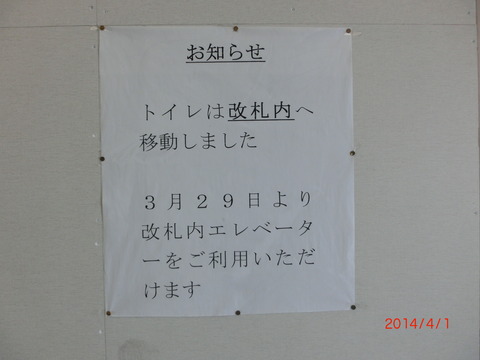 お知らせ
トイレは改札内へ
移動しました
３月２９日より
改札内エレベータ
ーをご利用いただ
けます
2014/4/1